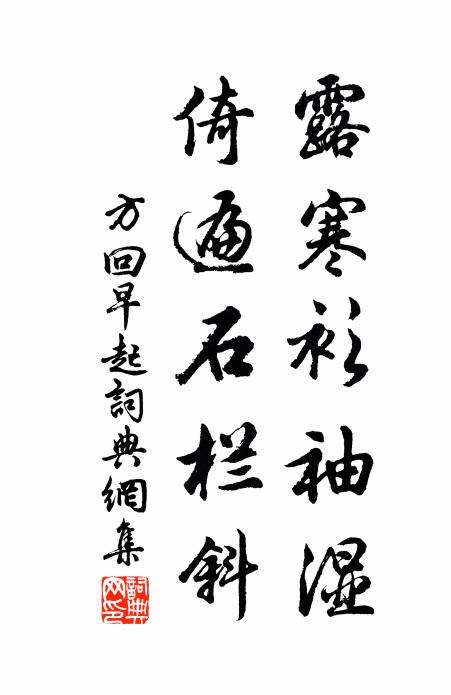 露寒衫袖湿
倚遍石栏斜
方回早起詞典網集
詞典網印